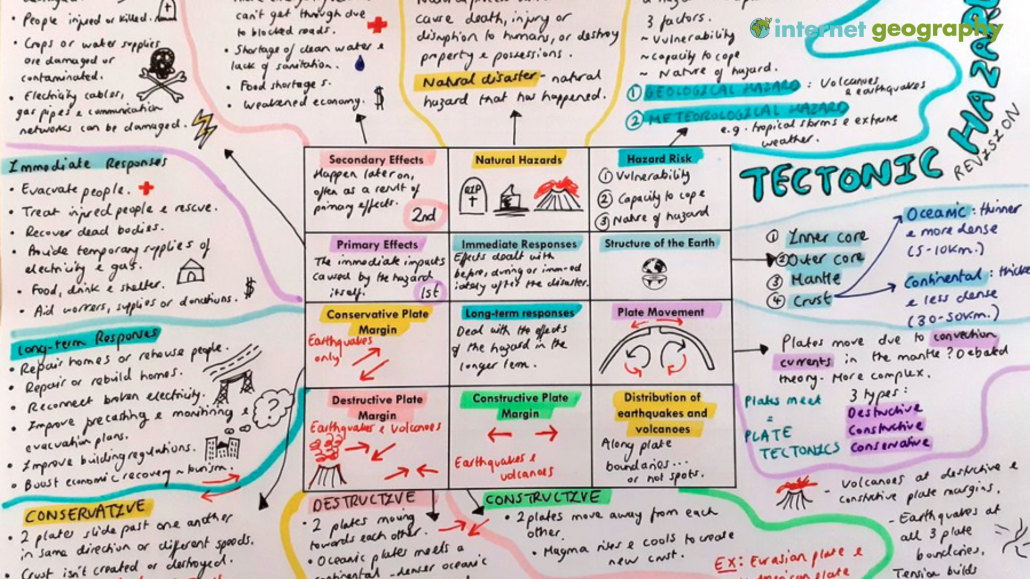 People injured or killed.
Crops or water supplies
are damaged or
contaminated.
Electricity cables,
gas pipes & communication
networks can be damaged.
can't get through due
to blocked roads.
Shortage of clean water &
lack of sanitation.
Food shortages.
Weakened economy.
cause death, injury or
disruption to humans, or destroy
property & possessions.
Natural disaster - natural
hazard that has happened.
3 factors.
~ Vulnerability
~ capacity to cope
~ Nature of hazard.
① GEOLOGICAL HAZARD: Volcanoes
& earthquakes
② METEOROLOGICAL HAZARD
e.g. tropical storms & extreme
weather.
internet geography
TECTONIC HAZARD
REVISION
Immediate Responses
Evacuate people.
Treat injured people & rescue.
Recover dead bodies.
Provide temporary supplies of
electricity & gas.
Food, drink & shelter.
Aid workers, supplies or donations.
Long-term Responses
Repair homes or rehouse people.
Repair or rebuild homes.
Reconnect broken electricity.
Improve precasting & monitoring &
evacuation plans.
Improve building regulations.
Boost economic recovery ~ tourism.
Secondary Effects
Happen later on,
often as a result of
primary effects.
2nd
Natural Hazards
RIP
Hazard Risk
① Vulnerability
② Capacity to cope
③ Nature of hazard
Primary Effects
The immediate impacts
caused by the hazard
itself.
1st
Immediate Responses
Effects dealt with
before, during or immed
iately after the disaster.
Structure of the Earth
Conservative Plate
Margin
Earthquakes
only!
Long-term responses
Deal with the effects
of the hazard in the
longer term.
Plate Movement
Destructive Plate
Margin
Earthquakes & Volcanoes
Constructive Plate
Margin
Earthquakes &
volcanoes
Distribution of
earthquakes and
volcanoes
Along plate
boundaries...
or hot spots.
① Inner core
② Outer core
③ Mantle
④ Crust
Oceanic: thinner
& more dense
(5-10km.)
Continental: thick
& less dense
(30-50km.)
Plates move due to convection
currents in the mantle? Debated
theory. More complex.
Plates meet
=
PLATE
TECTONICS
3 types:
Destructive
Constructive
Conservative
- Volcanoes at destructive &
constructive plate margins.
- Earthquakes at
all 3 plate
boundaries.
Tension builds
CONSERVATIVE
2 plates slide past one another
in same direction or different speeds.
Crust isn't created or destroyed.
DESTRUCTIVE
2 plates moving
towards each other.
Oceanic plates meets a
continental - denser oceanic
CONSTRUCTIVE
2 plates move away from each
other.
Magma rises & cools to create
new crust.
EX: Eurasian plate &
plate